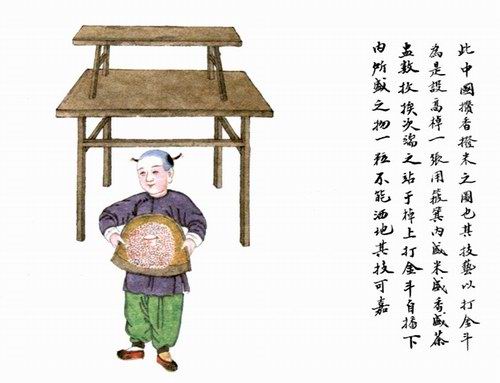 此中國攢香撥米之圖也其技藝以打金斗
為是設高棹一張用簸箕內盛米盛香盛茶
盅數枚挨次端之站于棹上打金斗自播下
內所盛之物一粒不能洒地其技可嘉